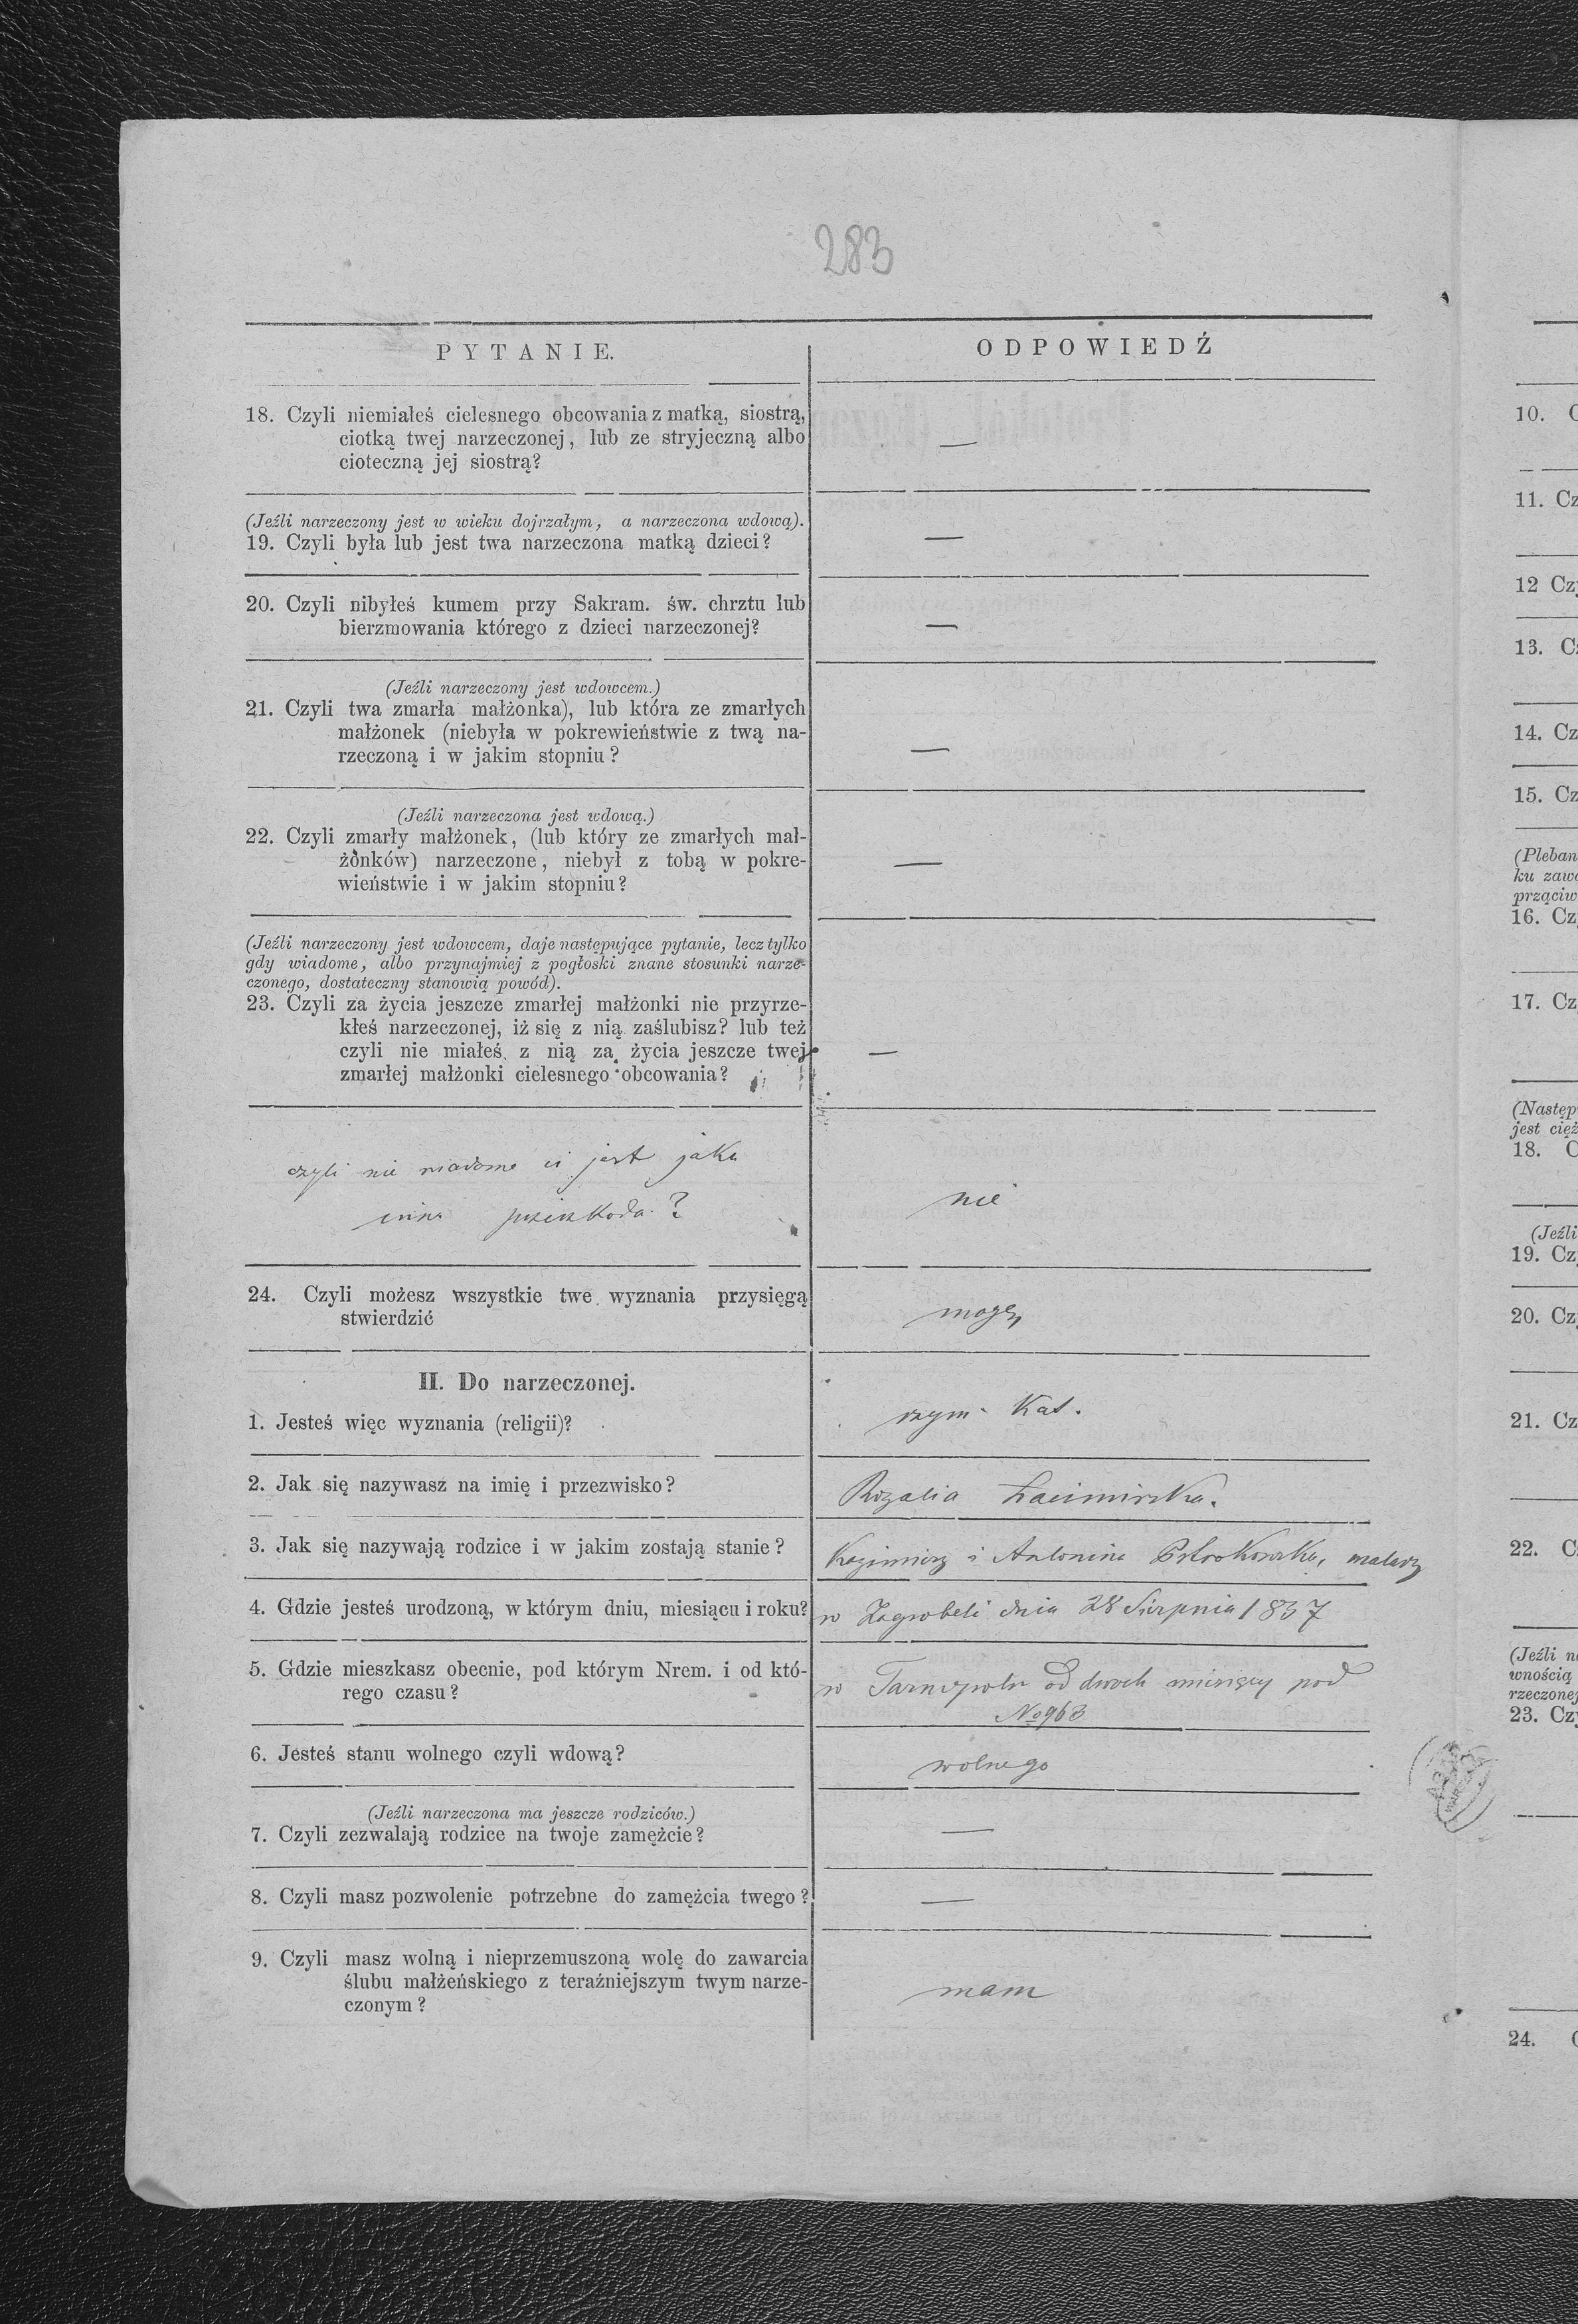 283
PYTANIE.
ODPOWIEDŹ
18. Czyli niemiałeś cielesnego obcowania z matką, siostrą,
ciotką twej narzeczonej, lub ze stryjeczną albo
cioteczną jej siostrą?
—
(Jeźli narzeczony jest w wieku dojrzałym, a narzeczona wdową).
19. Czyli była lub jest twa narzeczona matką dzieci?
—
20. Czyli nibyłeś kumem przy Sakram. św. chrztu lub
bierzmowania którego z dzieci narzeczonej?
—
(Jeźli narzeczony jest wdowcem.)
21. Czyli twa zmarła małżonka), lub która ze zmarłych
małżonek (niebyła w pokrewieństwie z twą na-
rzeczoną i w jakim stopniu?
—
(Jeźli narzeczona jest wdową.)
22. Czyli zmarły małżonek, (lub który ze zmarłych mał-
żonków) narzeczone, niebył z tobą w pokre-
wieństwie i w jakim stopniu?
—
(Jeźli narzeczony jest wdowcem, daje następujące pytanie, lecz tylko
gdy wiadome, albo przynajmiej z pogłoski znane stosunki narze-
czonego, dostateczny stanowią powód).
23. Czyli za życia jeszcze zmarłej małżonki nie przyrze-
kłeś narzeczonej, iż się z nią zaślubisz? lub też
czyli nie miałeś z nią za życia jeszcze twej
zmarłej małżonki cielesnego obcowania?
—
czyli nie wiadome ci jest jaka
inna przeszkoda?
nie
24. Czyli możesz wszystkie twe wyznania przysięgą
stwierdzić
mogę
II. Do narzeczonej.
1. Jesteś więc wyznania (religii)?
rzym. Kat.
2. Jak się nazywasz na imię i przezwisko?
Rozalia
3. Jak się nazywają rodzice i w jakim zostają stanie?
Kazimierz i Antonina malarz
4. Gdzie jesteś urodzoną, w którym dniu, miesiącu i roku?
w Zagrobeli dnia 28 Sierpnia 1837
5. Gdzie mieszkasz obecnie, pod którym Nrem. i od któ-
rego czasu?
w Tarnopolu od dwoch miesięcy pod
No 963
6. Jesteś stanu wolnego czyli wdową?
wolnego
(Jeźli narzeczona ma jeszcze rodziców.)
7. Czyli zezwalają rodzice na twoje zamężcie?
—
8. Czyli masz pozwolenie potrzebne do zamężcia twego?
—
9. Czyli masz wolną i nieprzemuszoną wolę do zawarcia
ślubu małżeńskiego z teraźniejszym twym narze-
czonym?
mam
10. C
11. Cz
12 Czy
13. Cz
14. Cz
15. Cz
(Pleban
ku zawo
prząciw
16. Cz
17. Cz
(Następ
jest cięż
18. C
(Jeźli
19. Cz
20. Cz
21. Cz
22. C
(Jeźli n
wnością
rzeczonej
23. Czy
24. C